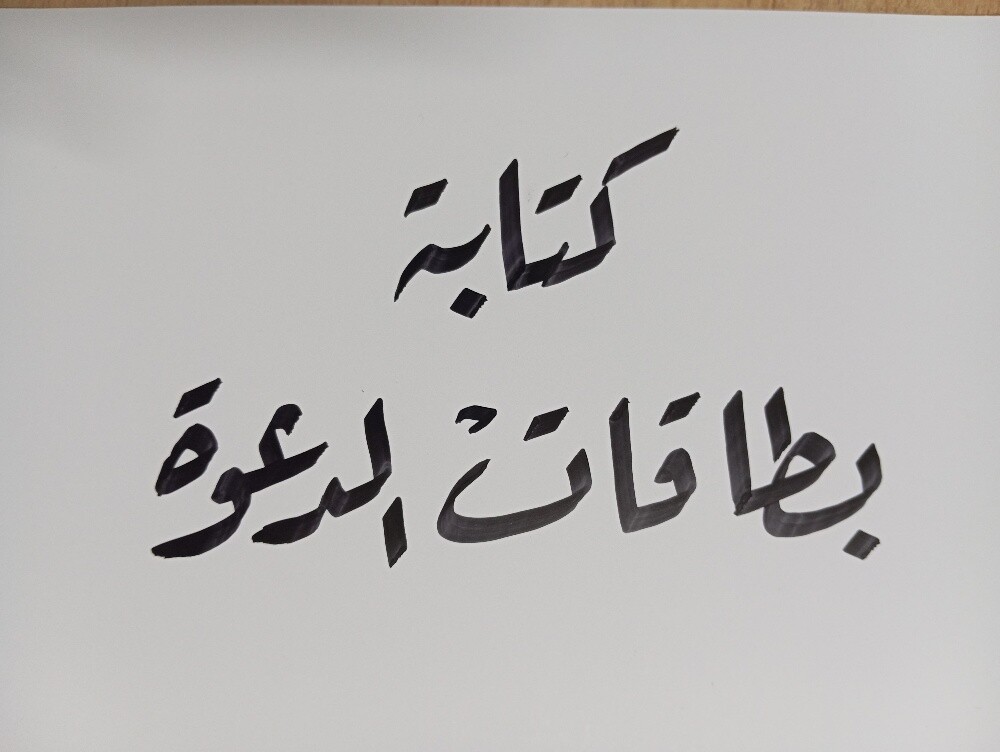 كتابة
بطاقات الدعوة